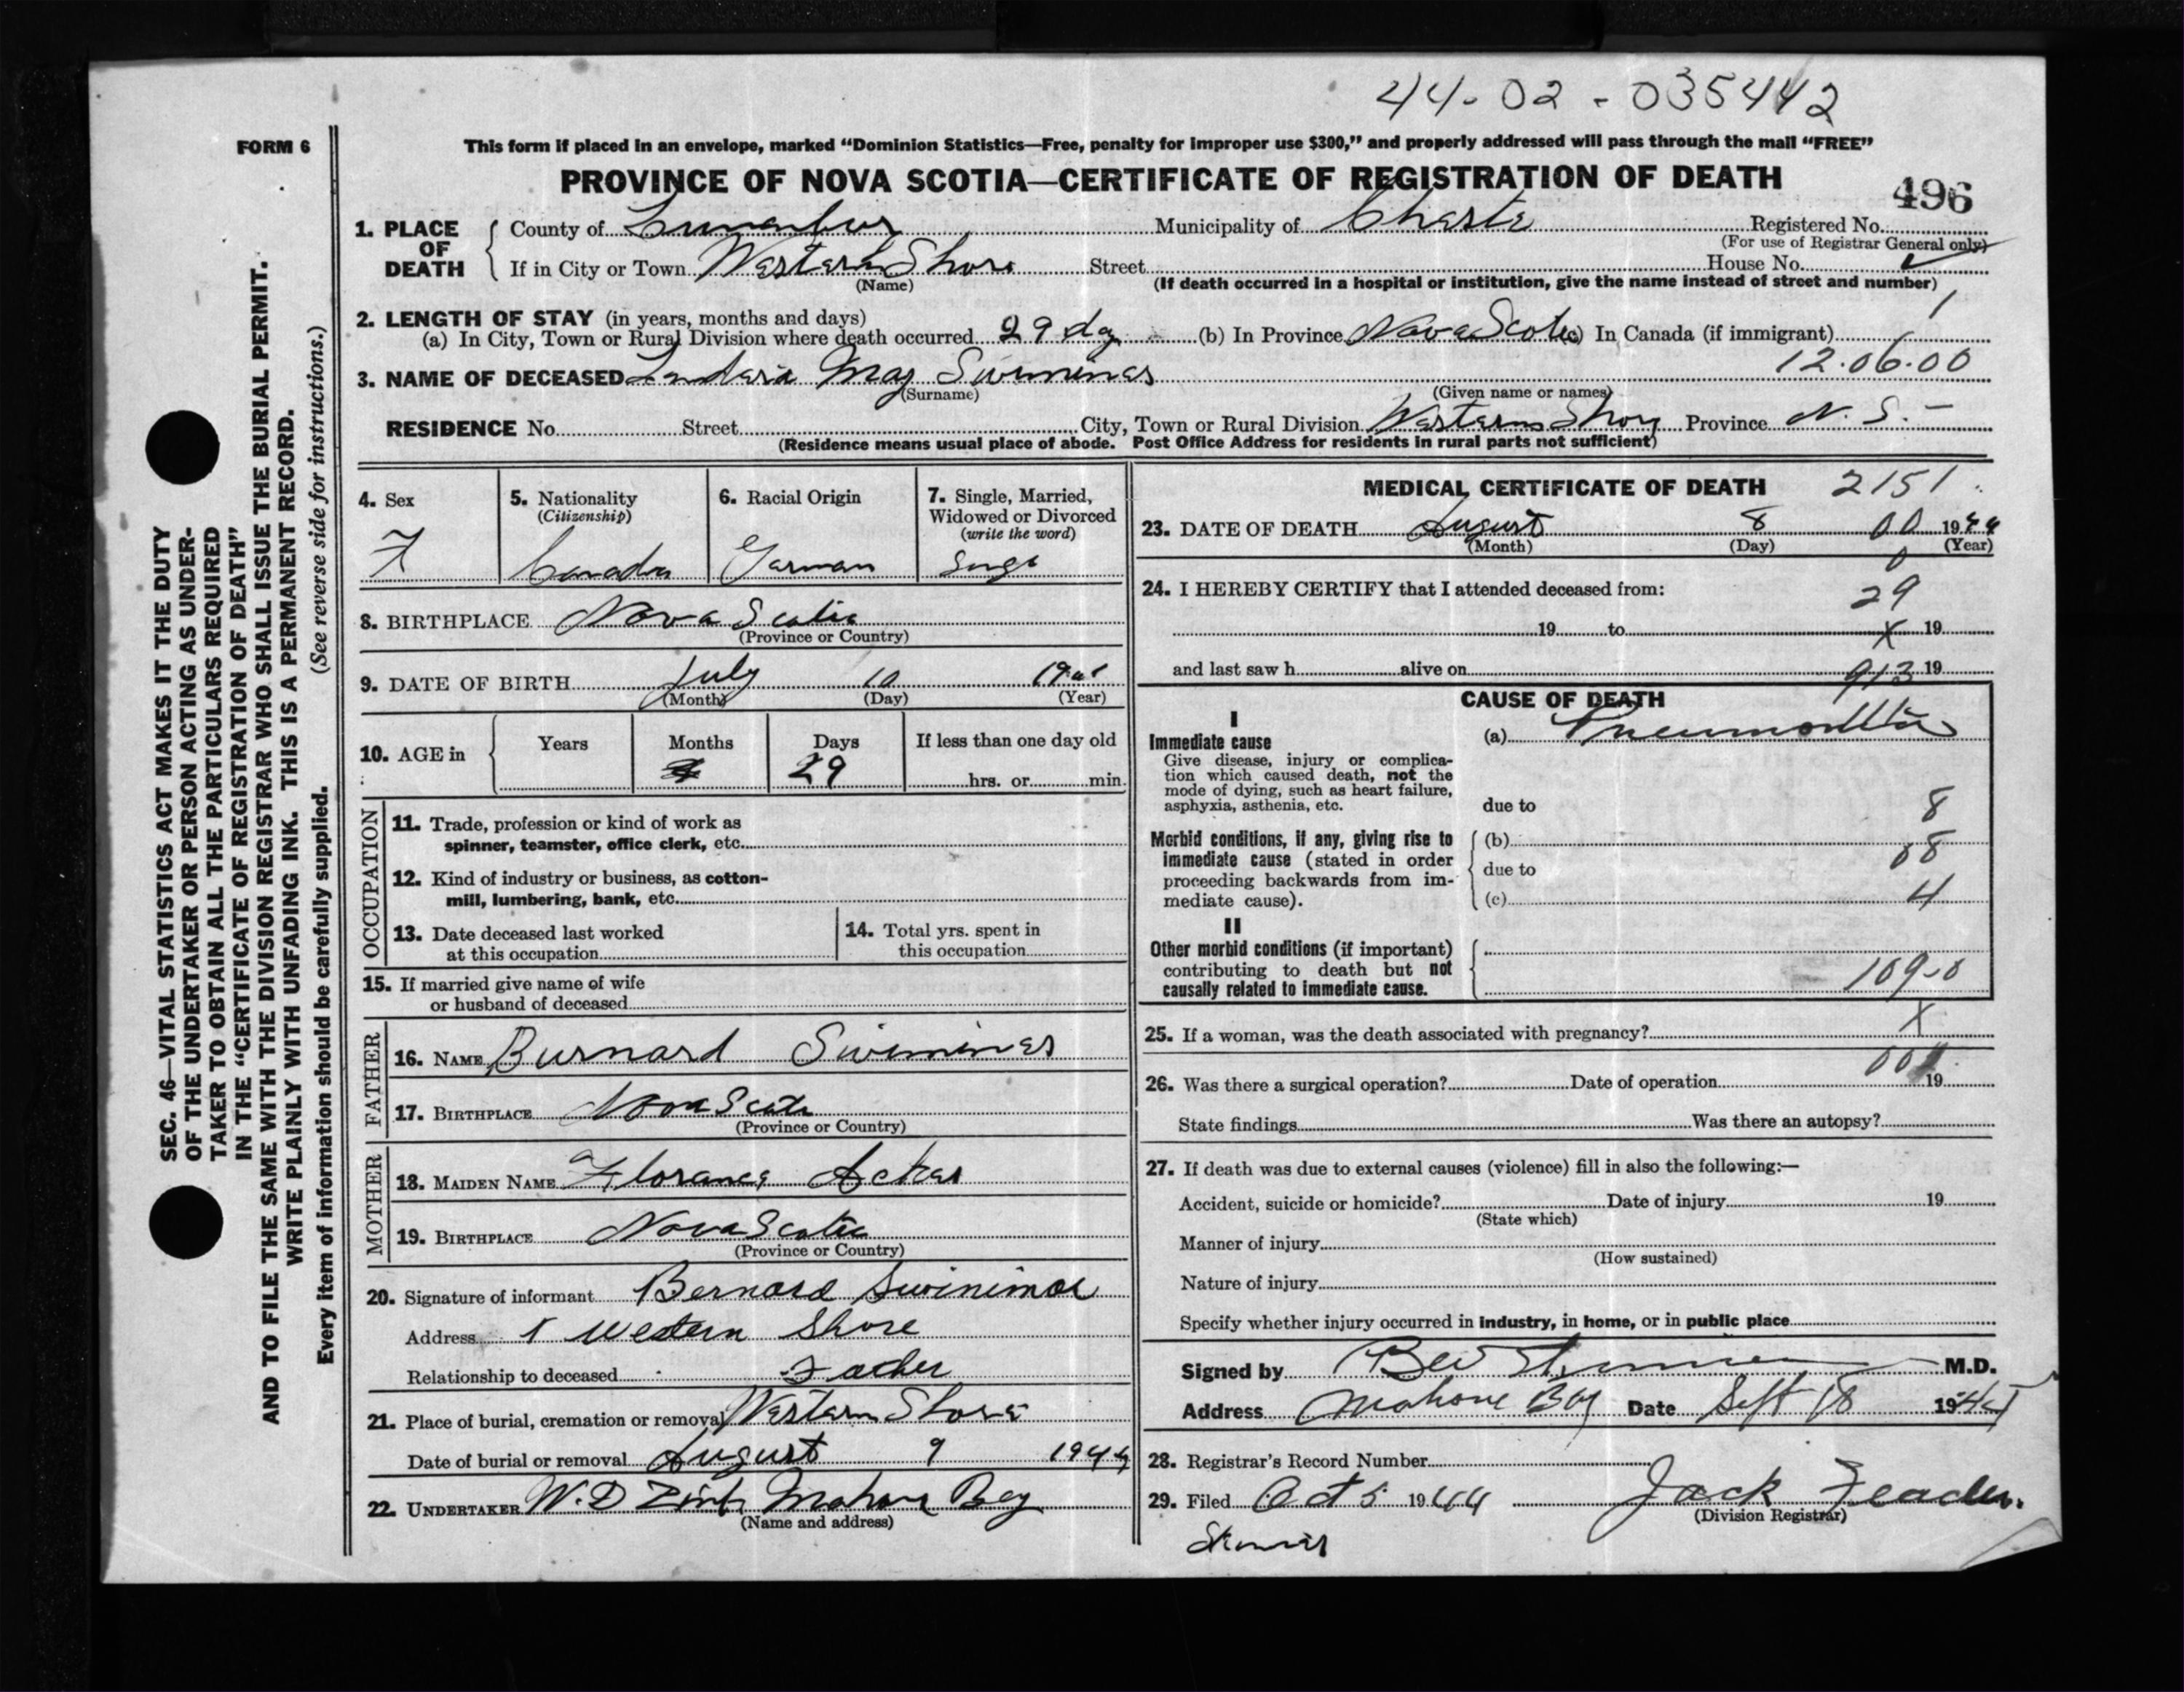 44-02-035442
FORM 6
This form if placed in an envelope, marked "Dominion Statistics—Free, penalty for improper use $300," and properly addressed will pass through the mail "FREE"
PROVINCE OF NOVA SCOTIA—CERTIFICATE OF REGISTRATION OF DEATH
496
1. PLACE OF DEATH
County of Municipality of Registered No.
(For use of Registrar General only)
If in City or Town Western Shore Street House No.
(Name) (If death occurred in a hospital or institution, give the name instead of street and number)
2. LENGTH OF STAY (in years, months and days) 1
(a) In City, Town or Rural Division where death occurred 29 day (b) In Province Nova Scotia (c) In Canada (if immigrant)
12.06.00
3. NAME OF DECEASED May
(Surname) (Given name or names)
RESIDENCE No. Street City, Town or Rural Division Western Shore Province N. S. -
(Residence means usual place of abode. Post Office Address for residents in rural parts not sufficient)
4. Sex
F
5. Nationality
(Citizenship)
Canada
6. Racial Origin
German
7. Single, Married,
Widowed or Divorced
(write the word)
8. BIRTHPLACE Nova Scotia
(Province or Country)
9. DATE OF BIRTH July 10
(Month) (Day) (Year)
10. AGE in
Years Months Days If less than one day old
29 hrs. or min.
OCCUPATION
11. Trade, profession or kind of work as
spinner, teamster, office clerk, etc.
12. Kind of industry or business, as cotton-
mill, lumbering, bank, etc.
13. Date deceased last worked
at this occupation
14. Total yrs. spent in
this occupation
15. If married give name of wife
or husband of deceased
FATHER
16. NAME Burnard
17. BIRTHPLACE Nova Scotia
(Province or Country)
MOTHER
18. MAIDEN NAME
19. BIRTHPLACE Nova Scotia
(Province or Country)
20. Signature of informant Bernard Swinimar
Address Western Shore
Relationship to deceased Father
21. Place of burial, cremation or removal Western Shore
Date of burial or removal August 9 1944
22. UNDERTAKER W. D Zink Mahone Bay
(Name and address)
MEDICAL CERTIFICATE OF DEATH 2151
23. DATE OF DEATH August 8 00 1944
(Month) (Day) (Year)
0
24. I HEREBY CERTIFY that I attended deceased from: 29
19 to X 19
and last saw h alive on 913 19
CAUSE OF DEATH
I
Immediate cause
Give disease, injury or complica-
tion which caused death, not the
mode of dying, such as heart failure,
asphyxia, asthenia, etc.
(a) Pneumonia
due to 8
Morbid conditions, if any, giving rise to
immediate cause (stated in order
proceeding backwards from im-
mediate cause).
(b)
08
due to
(c) 4
II
Other morbid conditions (if important)
contributing to death but not
causally related to immediate cause.
109-0
25. If a woman, was the death associated with pregnancy? X
26. Was there a surgical operation? Date of operation 19
State findings Was there an autopsy?
27. If death was due to external causes (violence) fill in also the following:—
Accident, suicide or homicide? Date of injury 19
(State which)
Manner of injury
(How sustained)
Nature of injury
Specify whether injury occurred in industry, in home, or in public place
Signed by M.D.
Address Mahone Bay Date Sept 18 19
28. Registrar's Record Number
29. Filed Oct 5 1944 Jack
(Division Registrar)
SEC. 46—VITAL STATISTICS ACT MAKES IT THE DUTY
OF THE UNDERTAKER OR PERSON ACTING AS UNDER-
TAKER TO OBTAIN ALL THE PARTICULARS REQUIRED
IN THE "CERTIFICATE OF REGISTRATION OF DEATH"
AND TO FILE THE SAME WITH THE DIVISION REGISTRAR WHO SHALL ISSUE THE BURIAL PERMIT.
WRITE PLAINLY WITH UNFADING INK. THIS IS A PERMANENT RECORD.
Every item of information should be carefully supplied. (See reverse side for instructions.)